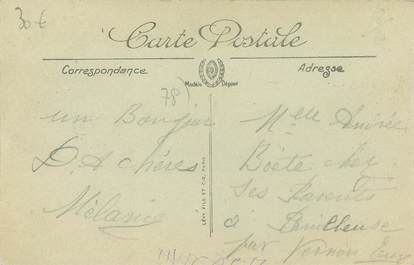 30 €
Carte Postale
Correspondance
Modèle Déposé
Adresse
78)
un Bonjour
D'Achères
Mélanie
LÉVY FILS ET CIE, PARIS
Melle Andrée
Boëte chez
Ses Parents
à
par Vernon Eure